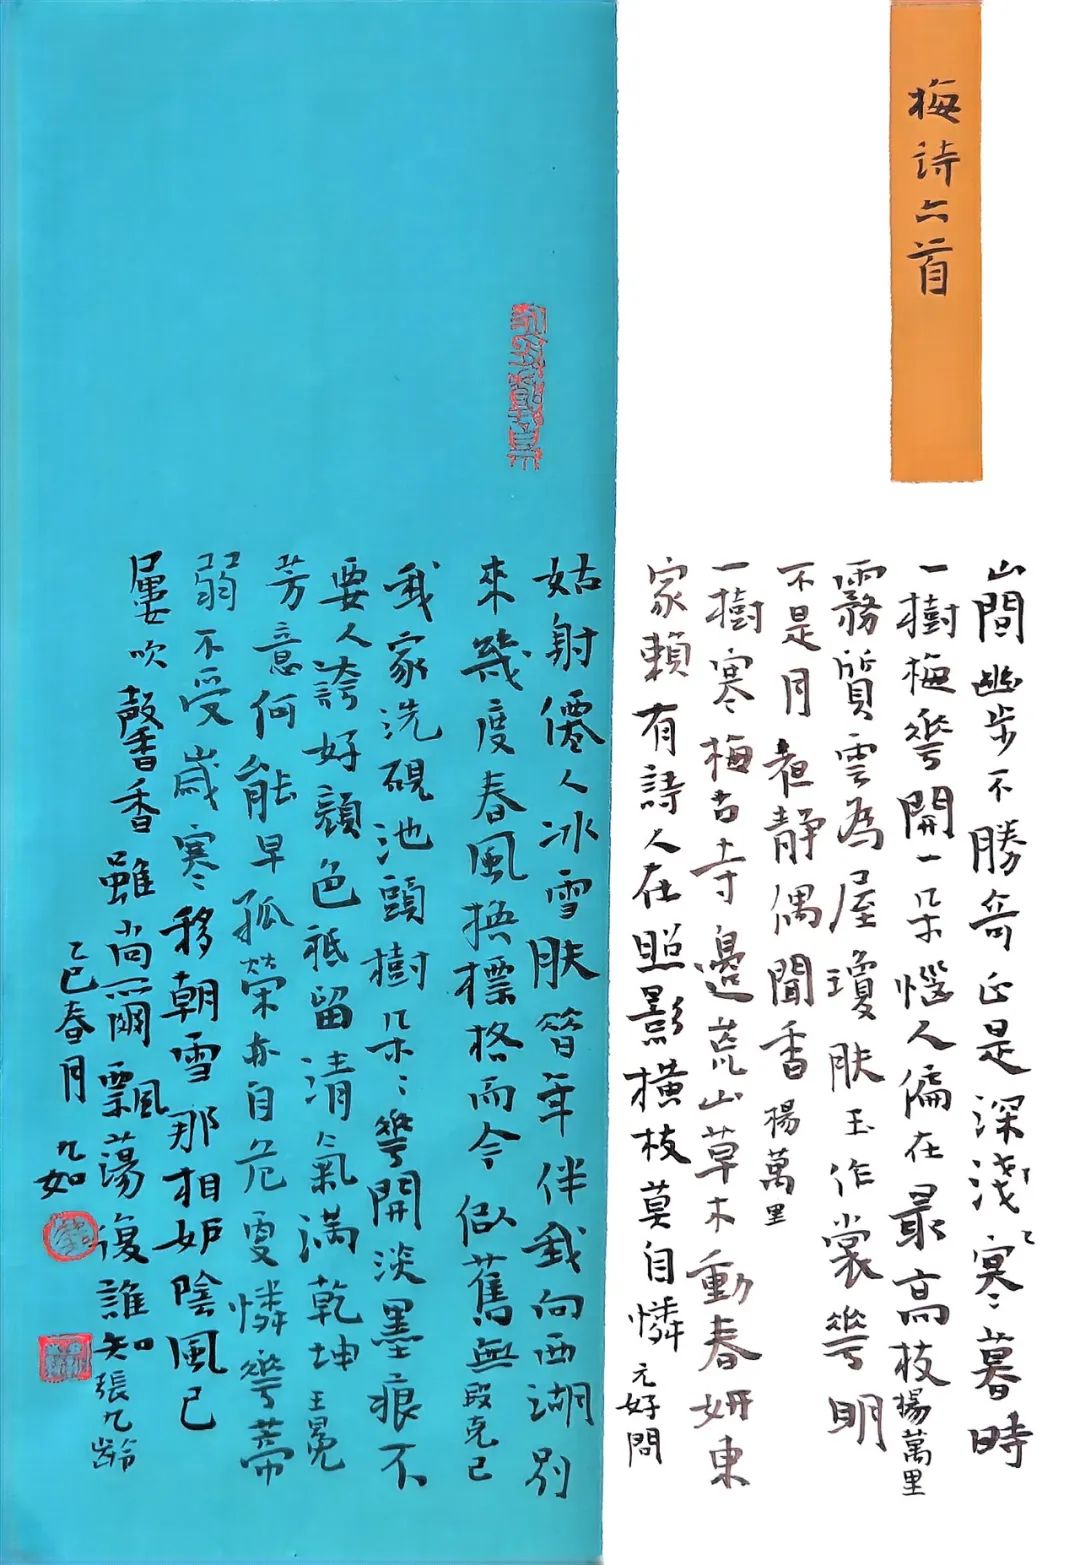 梅詩六首
山間幽步不勝奇正是深淺寒暮時
一樹梅華開一朵惱人偏在最高枝楊萬里
霧質雲為屋瓊肤玉作裳華明
不是月夜静偶聞香楊萬里
一樹寒梅古寺邊荒山草木動春妍東
家賴有詩人在照影橫枝莫自憐元好問
姑射僊人冰雪肤昔年伴我向西湖別
來幾度春風换標格而今似舊無段克己
我家洗硯池頭樹几朵〻華開淡墨痕不
要人誇好顏色祗留清氣滿乾坤王冕
芳意何能早孤榮亦自危更憐華蒂
弱不受歲寒移朝雪那相妒陰風已
屢吹馨香雖尚爾飄蕩復誰知張九齡
乙巳春月九如